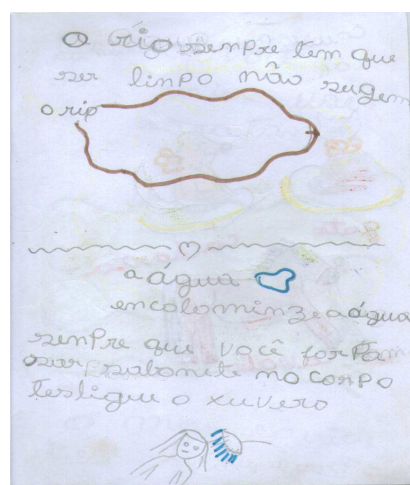 O rio sempre tem que
ser linpo não sugem
o rio
a água
encolominze a água
senpre que você for pasn
sar sabonite no corpo
tesligue o xuvero